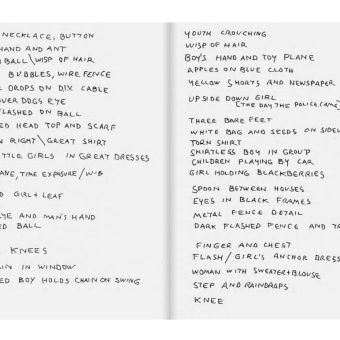 NECKLACE, BUTTON
HAND AND ANT
BALL\WISP OF HAIR
BUBBLES, WIRE FENCE
DROPS ON DIX CABLE
OVER DOGS EYE
FLASHED ON BALL
ED HEAD TOP AND SCARF
N RIGHT\GREAT SHIRT
TTLE GIRLS IN GREAT DRESSES
ANE, TIME EXPOSURE/W-B
ED GIRL + LEAF
EYE AND MAN'S HAND
ED BALL
KNEES
AIN IN WINDOW
ED BOY HOLDS CHAIN ON SWING
YOUTH CROUCHING
WISP OF HAIR
BOY'S HAND AND TOY PLANE
APPLES ON BLUE CLOTH
YELLOW SHORTS AND NEWSPAPER
UPSIDE DOWN GIRL
(THE DAY THE POLICE CAME)
THREE BARE FEET
WHITE BAG AND SEEDS ON SIDEW
TORN SHIRT
SHIRTLESS BOY IN GROUP
CHILDREN PLAYING BY CAR
GIRL HOLDING BLACKBERRIES
SPOON BETWEEN HOUSES
EYES IN BLACK FRAMES
METAL FENCE DETAIL
DARK FLASHED FENCE AND TR
FINGER AND CHEST
FLASH/GIRL'S ANCHOR DRESS
WOMAN WITH SWEATER + BLOUSE
STEP AND RAINDROPS
KNEE